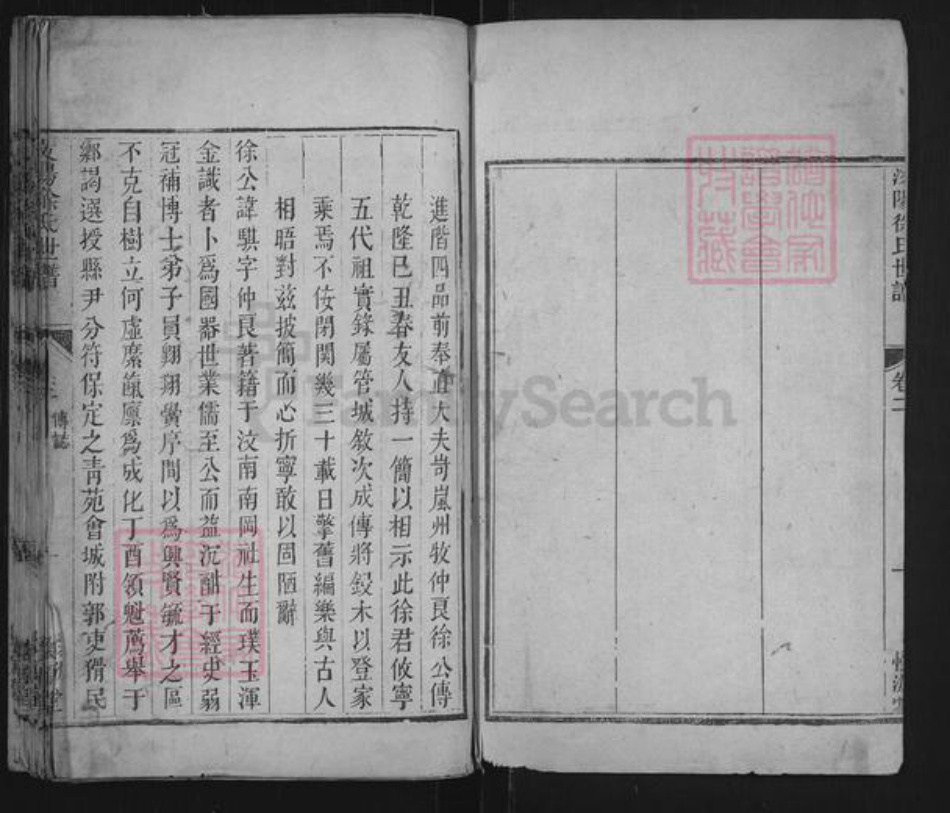 汶陽徐氏世譜
卷二
進階四品前奉直大夫岢嵐州牧仲良徐公傳
乾隆已丑春友人持一簡以相示此徐君攸寧
五代祖實錄屬管城敘次成傳將鋟木以登家
乘焉不佞閉關幾三十載日擎舊編樂與古人
相晤對茲披簡而心折寧敢以固陋辭
徐公諱騏字仲良著籍于汶南南岡社生而璞玉渾
金識者卜為國器世業儒至公而益沉酣于經史弱
冠補博士弟子員翔翔黌序間以為興賢毓才之區
不克自樹立何虛縻餼廩為成化丁酉領魁薦舉于
鄉謁選授縣尹分符保定之青苑會城附郭吏猾民
汶陽徐氏世譜
傳誌
FamilySearch